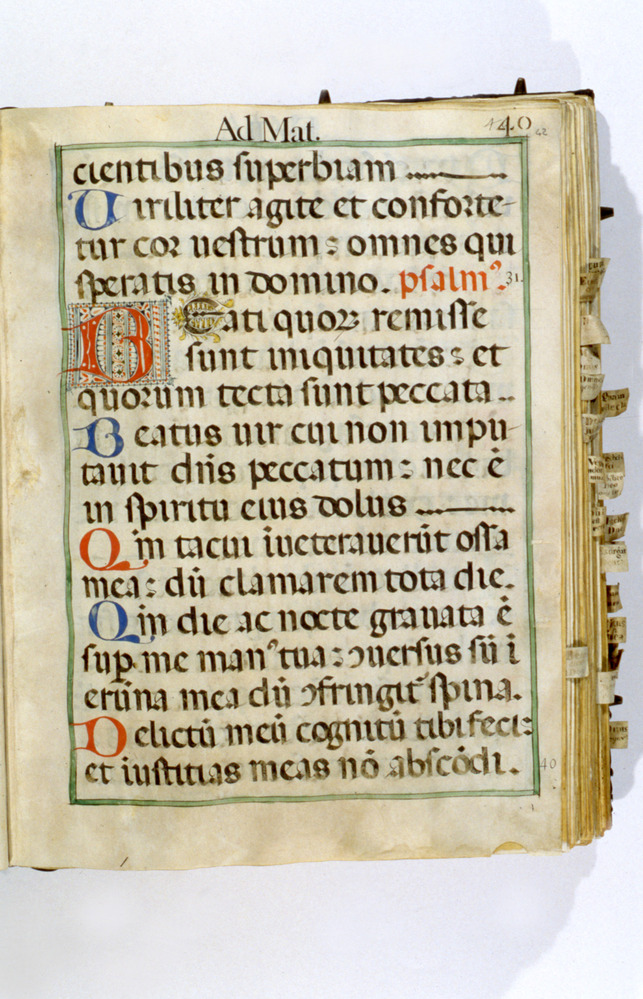 Ad Mat.
140
42
cientibus superbiam
Viriliter agite et conforte-
tur cor uestrum : omnes qui
speratis in domino. psalmꝰ. 31.
BEati quoꝝ remisse
sunt iniquitates : et
quorum tecta sunt peccata
Beatus uir cui non impu-
tauit dñs peccatum : nec ē
in spiritu eius dolus
Qm̄ tacui īueterauerūt ossa
mea : dū clamarem tota die.
Qm̄ die ac nocte grauata ē
suꝑ me manꝰ tua : ꝯuersus sū ī
erūna mea dū ꝯfringit᷑ spina.
Delictū meū cognitū tibi feci :
et iustitias meas nō abscōdi.
40